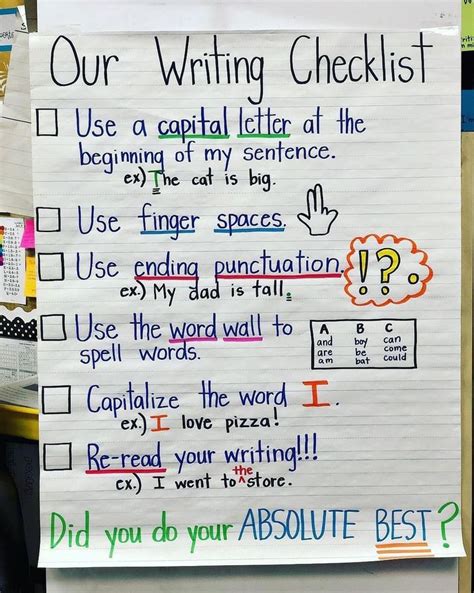 Our Writing Checklist
Use a capital letter at the
beginning of my sentence.
ex.) The cat is big.
Use finger spaces.
Use ending punctuation. !?.
ex.) My dad is tall.
Use the word wall to
spell words.
A B C
and boy can
are be come
am bat could
Capitalize the word I.
ex.) I love pizza!
Re-read your writing!!!
ex.) I went to ^the store.
Did you do your ABSOLUTE BEST?